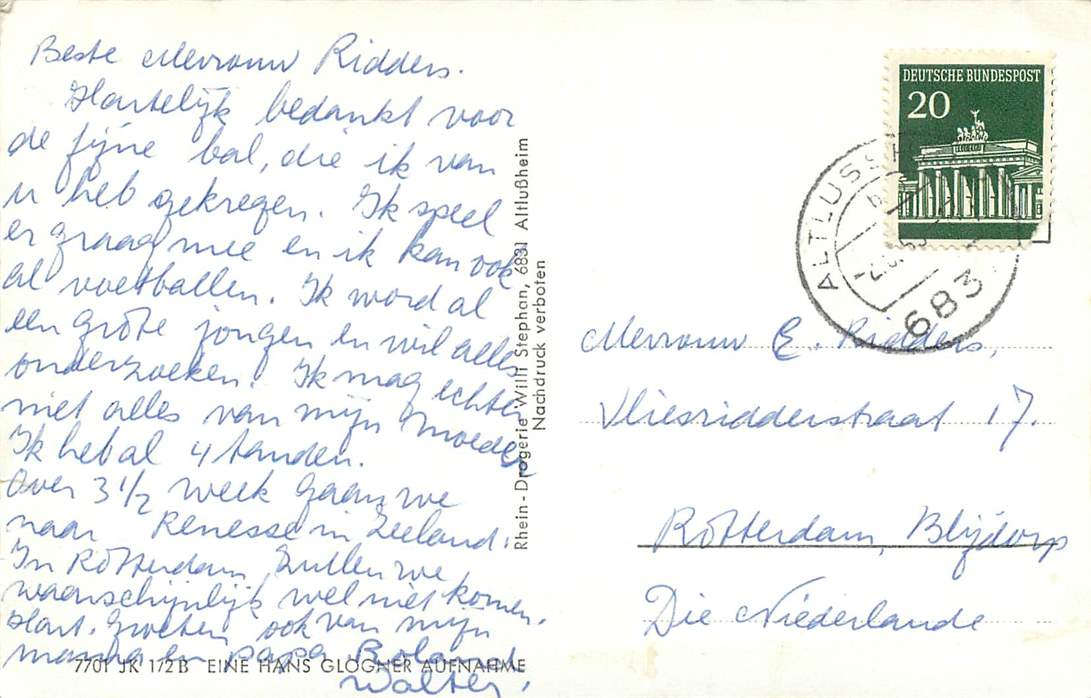 Beste Mevrouw Ridders.
Hartelijk bedankt voor
de fijne bal, die ik van
u heb gekregen. Ik speel
er graag mee en ik kan ook
al voetballen. Ik word al
een grote jongen en wil alles
onderzoeken. Ik mag echter
niet alles van mijn moeder.
Ik heb al 4 tanden.
Over 3 1/2 week gaan we
naar Renesse in Zeeland.
In Rotterdam zullen we
waarschijnlijk wel niet komen.
Hart. Groeten ook van mijn
mamma en papa
Walter.
7701 JK 172 B EINE HANS GLOGNER AUFNAHME
Rhein-Drogerie Willi Stephan, 6831 Altlußheim
Nachdruck verboten
DEUTSCHE BUNDESPOST
20
ALTLUSSH
683
Mevrouw E. Ridders,
Vliesridderstraat 17.
Rotterdam, Blijdorp
Die Niederlande